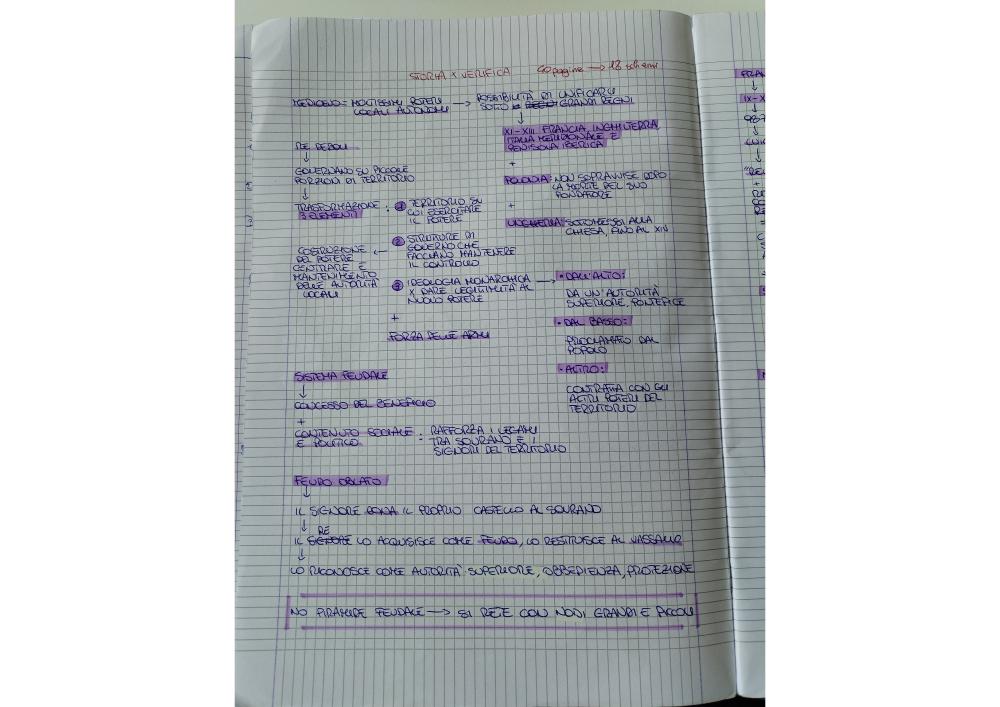 STORIA X VERIFICA 40 pagine → 18 schemi
MEDIOEVO = MOLTISSIMI POTERI
LOCALI AUTONOMI
→ POSSIBILITÀ DI UNIFICARLI
SOTTO GRANDI REGNI
↓
XI-XIII FRANCIA, INGHILTERRA
ITALIA MERIDIONALE E
PENISOLA IBERICA
+
POLONIA: NON SOPRAVVISSE DOPO
LA MORTE DEL SUO
FONDATORE
+
UNGHERIA: SOTTOMESSI ALLA
CHIESA, FINO AL XIV
RE DEBOLI
↓
GOVERNANO SU PICCOLE
PORZIONI DI TERRITORIO
↓
TRASFORMAZIONE :
3 ELEMENTI
1 TERRITORIO SU
CUI ESERCITARE
IL POTERE
2 STRUTTURE DI
GOVERNO CHE
FACCIANO MANTENERE
IL CONTROLLO
← COSTRUZIONE
DEL POTERE
CENTRALE E
MANTENIMENTO
DELLE AUTORITÀ
LOCALI
3 IDEOLOGIA MONARCHICA
X DARE LEGITTIMITÀ AL
NUOVO POTERE
+
FORZA DELLE ARMI
→ • DALL'ALTO:
DA UN'AUTORITÀ
SUPERIORE, PONTEFICE
• DAL BASSO:
PROCLAMATO DAL
POPOLO
• ALTRO:
CONTRATTA CON GLI
ALTRI POTERI DEL
TERRITORIO
SISTEMA FEUDALE
↓
CONCESSO DEL BENEFICIO
+
CONTENUTO SOCIALE :
E POLITICO
RAFFORZA I LEGAMI
TRA SOVRANO E I
SIGNORI DEL TERRITORIO
FEUDO OBLATO
↓
IL SIGNORE DONA IL PROPRIO CASTELLO AL SOVRANO
↓
IL SIGNORE RE LO ACQUISISCE COME FEUDO, LO RESTITUISCE AL VASSALLO
↓
LO RICONOSCE COME AUTORITÀ SUPERIORE, OBBEDIENZA, PROTEZIONE
NO PIRAMIDE FEUDALE → SI RETE CON NODI GRANDI E PICCOLI
FRAN
IX-X
↓
987
↓
↓